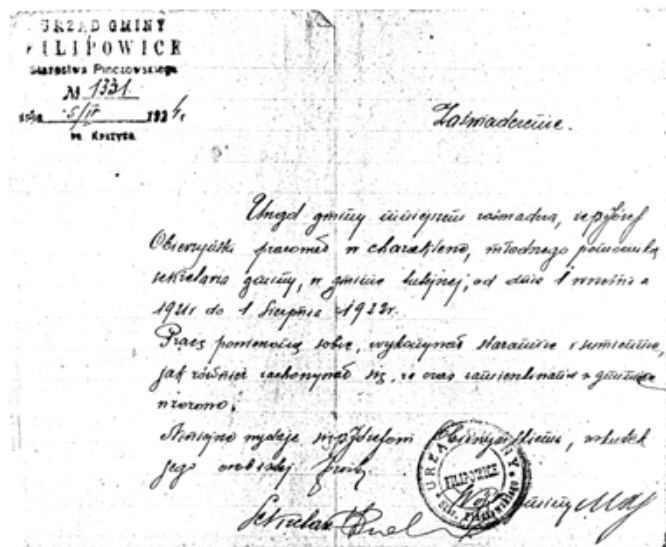 URZĄD GMINY
FILIPOWICE
Starostwa Pinczowskiego
№ 1331
dnia 5/IV 1924 r
w Krzyża
Zaświadczenie.
Urząd gminy niniejszem zaświadcza, że p. Józef
Obierzyński pracował w charakterze, młodszego pomocnika
sekretarza gminy, w gminie tutejszej, od dnia 1 września
1921r do 1 Sierpnia 1923r.
Pracę pomienioną sobie, wykonywał starannie i sumiennie,
jak również zachowywał się, w czas zamieszkania w gminie
wzorowo.
Niniejsze wydaje się p. Józefowi Obierzyńskiemu, wskutek
jego osobistej prośby.
URZĄD GMINY
FILIPOWICE
Sekretarz
Wójt gminy